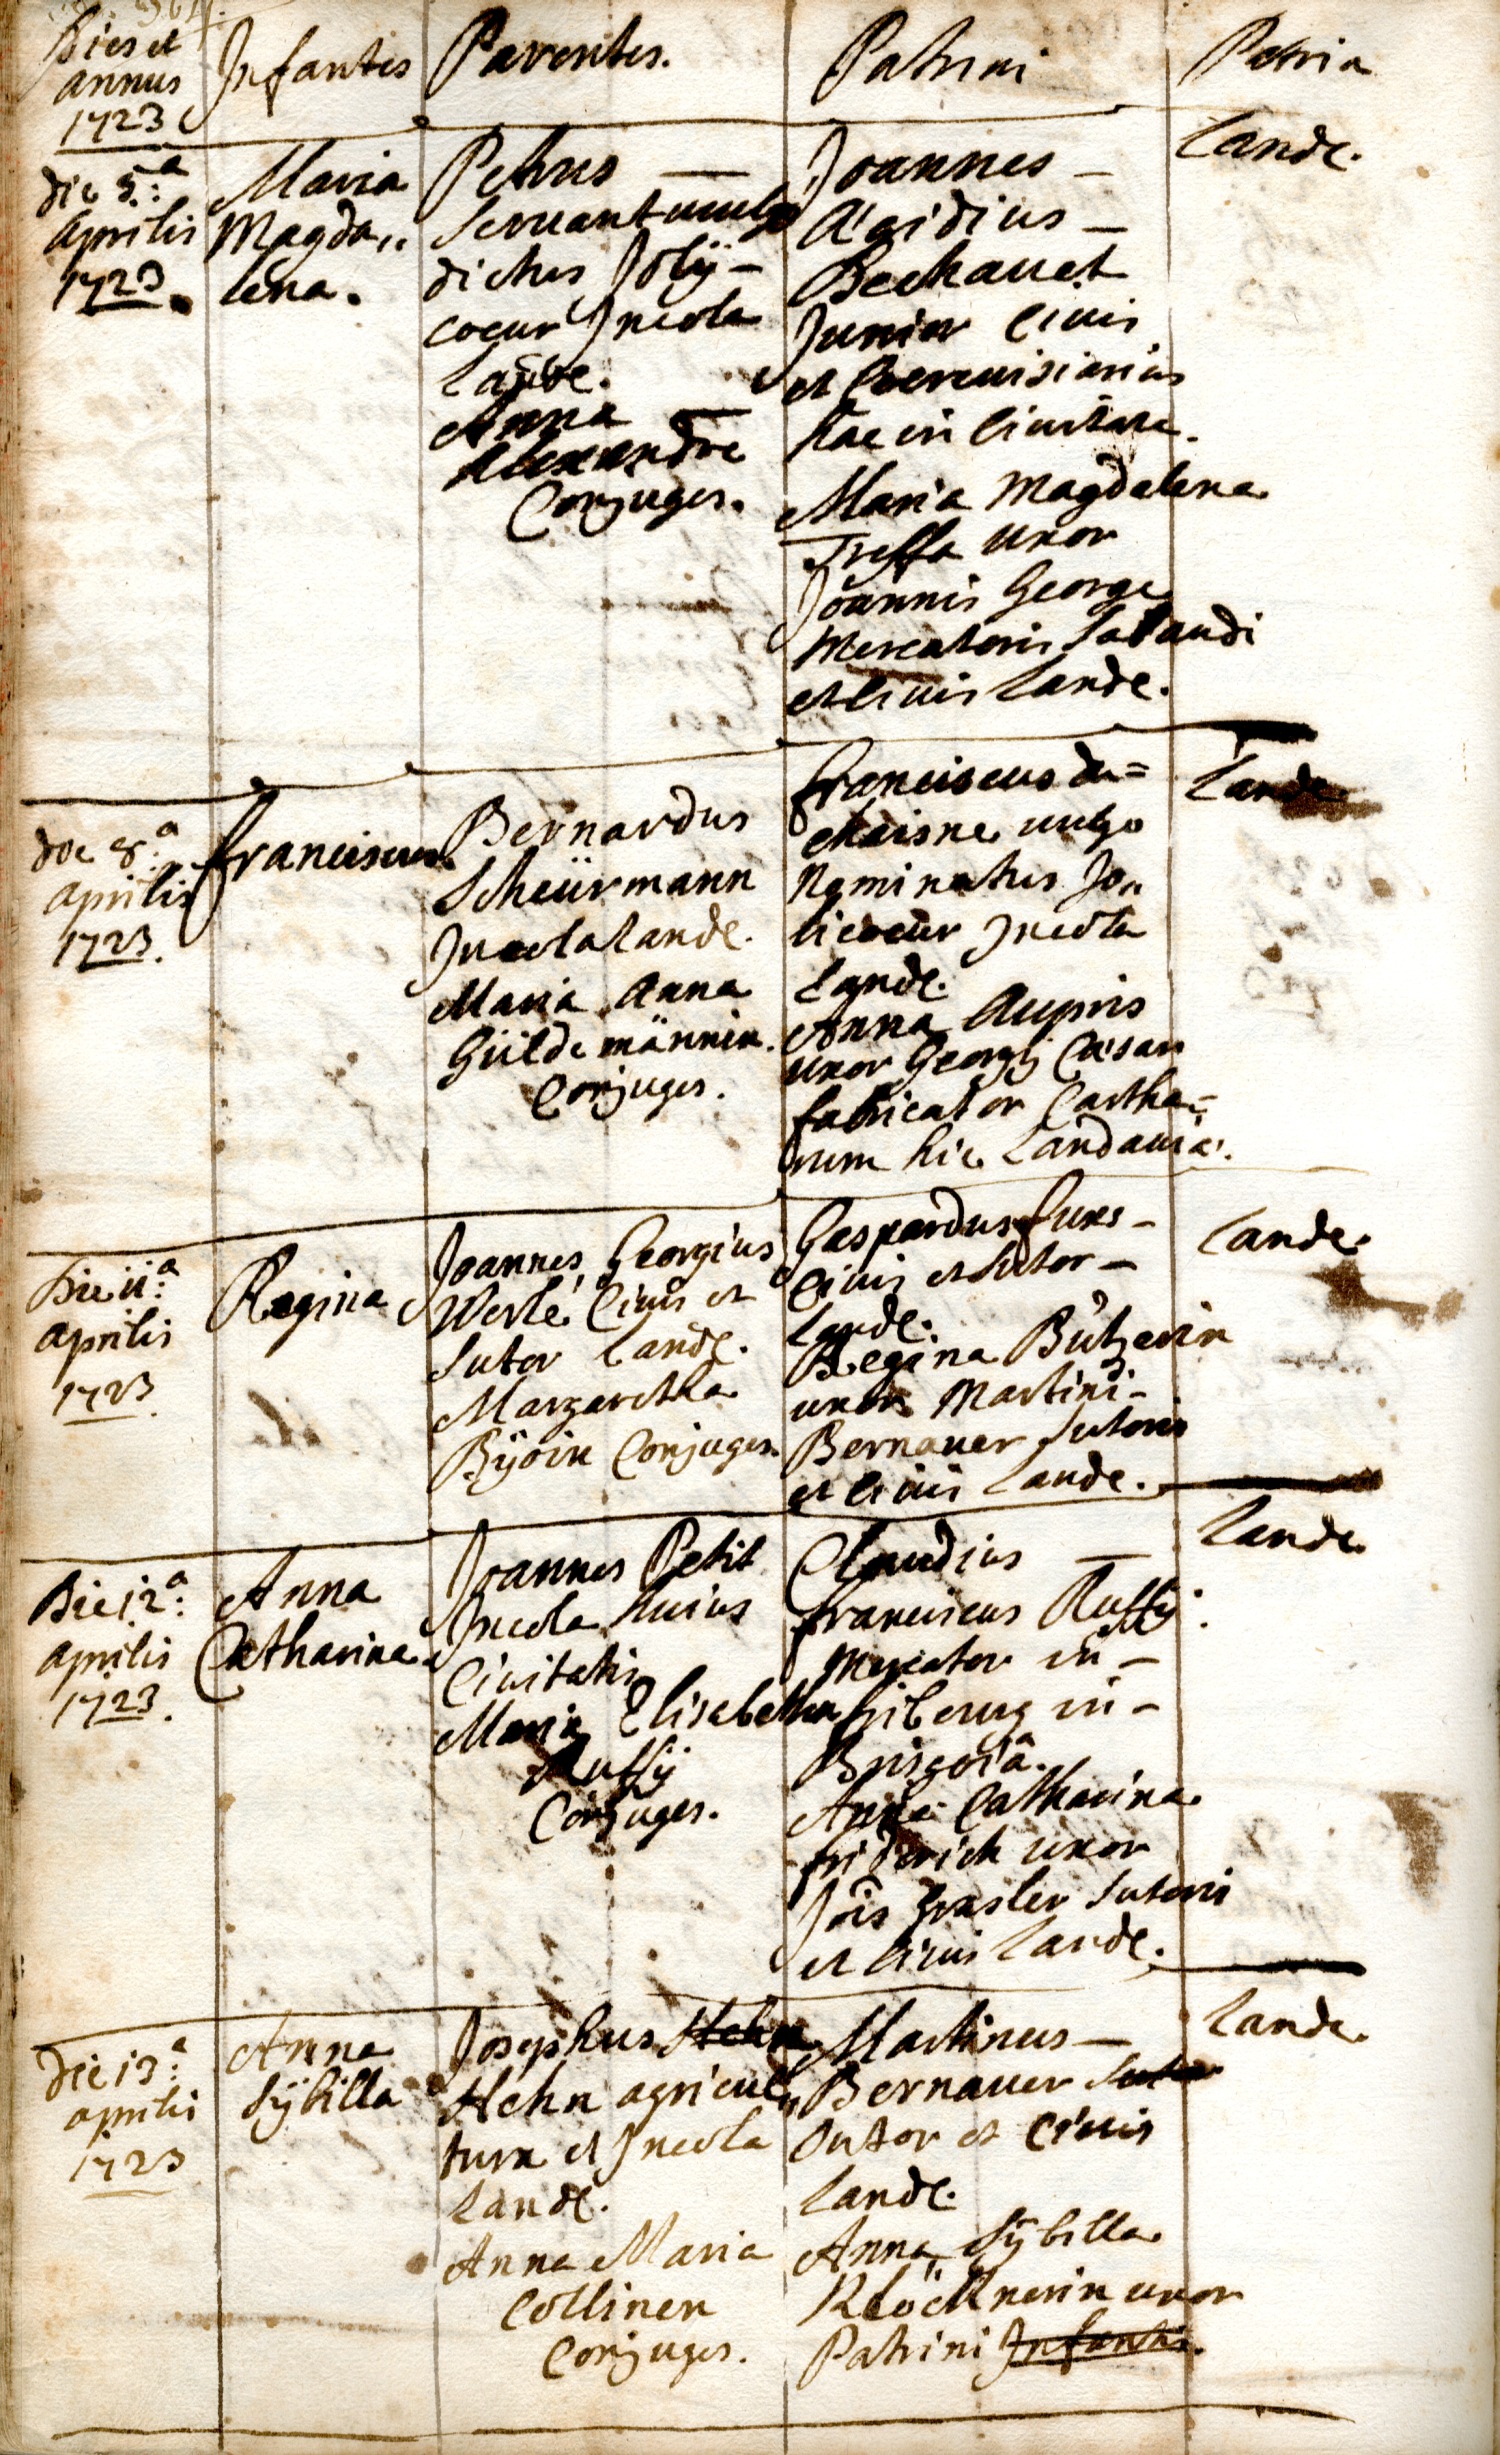 Dies et
annus
1723
Infantes
Parentes.
Patrini
Patria
die 5.a
aprilis
1723.
Maria
Magda„
lena.
Petrus —
Servant vulgo
dictus Jolÿ-
coeur Incola
Lande.
Anna
Alexandre
Conjuges.
Joannes —
Ægidius —
Bechauet
Junior Civis
et Cerevisiarius
hac in Civitate.
Maria Magdalena
Treffa uxor
Joannis George
Mercatoris
et Civis Lande.
Lande.
die 8.a
aprilis
1723.
Franciscus.
Bernardus
Scheürmann
Incola Lande.
Maria Anna
Güldemännin.
Conjuges.
Franciscus du=
chaisne vulgo
Nominatus Jo„
licoeur Incola
Lande.
Anna Aupris
uxor Georgij Cæsar
fabricator Cartha=
rum hic Landaviæ.
Lande
Die 11.a
aprilis
1723
Regina
Joannes Georgius
Werlé Civis et
Sutor Lande.
Margaretha
Bÿoin Conjuges.
Gaspardus fuxs —
Civis et Sutor —
Lande.
Regina Bützerin
uxor Martini -
Bernauer Sutoris
et Civis Lande.
Lande.
Die 12.a
aprilis
1723.
Anna
Catharina
Joannes Petit
Incola huius
Civitatis
Maria Elisabetha
Ruffÿ
Conjuges.
Claudius —
franciscus Ruffÿ.
Mercator in —
friberug in —
Brisgoiâ.
Anna Catharina
friderich uxor
Jois Sutoris
et Civis Lande.
Lande.
Die 13.a
aprilis
1723
Anna
Sÿbilla
Josephus Hehn
Hehn agricul„
tura et Incola
Lande.
Anna Maria
Colliner
Conjuges.
Martinus —
Bernauer Sutor
Sutor et Civis
Lande.
Anna Sÿbilla
Klöcknerin uxor
Patrini Infantis.
Lande.